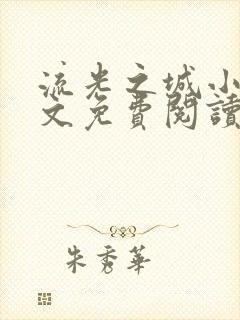 流光之城小
文免費閱讀
朱秀華